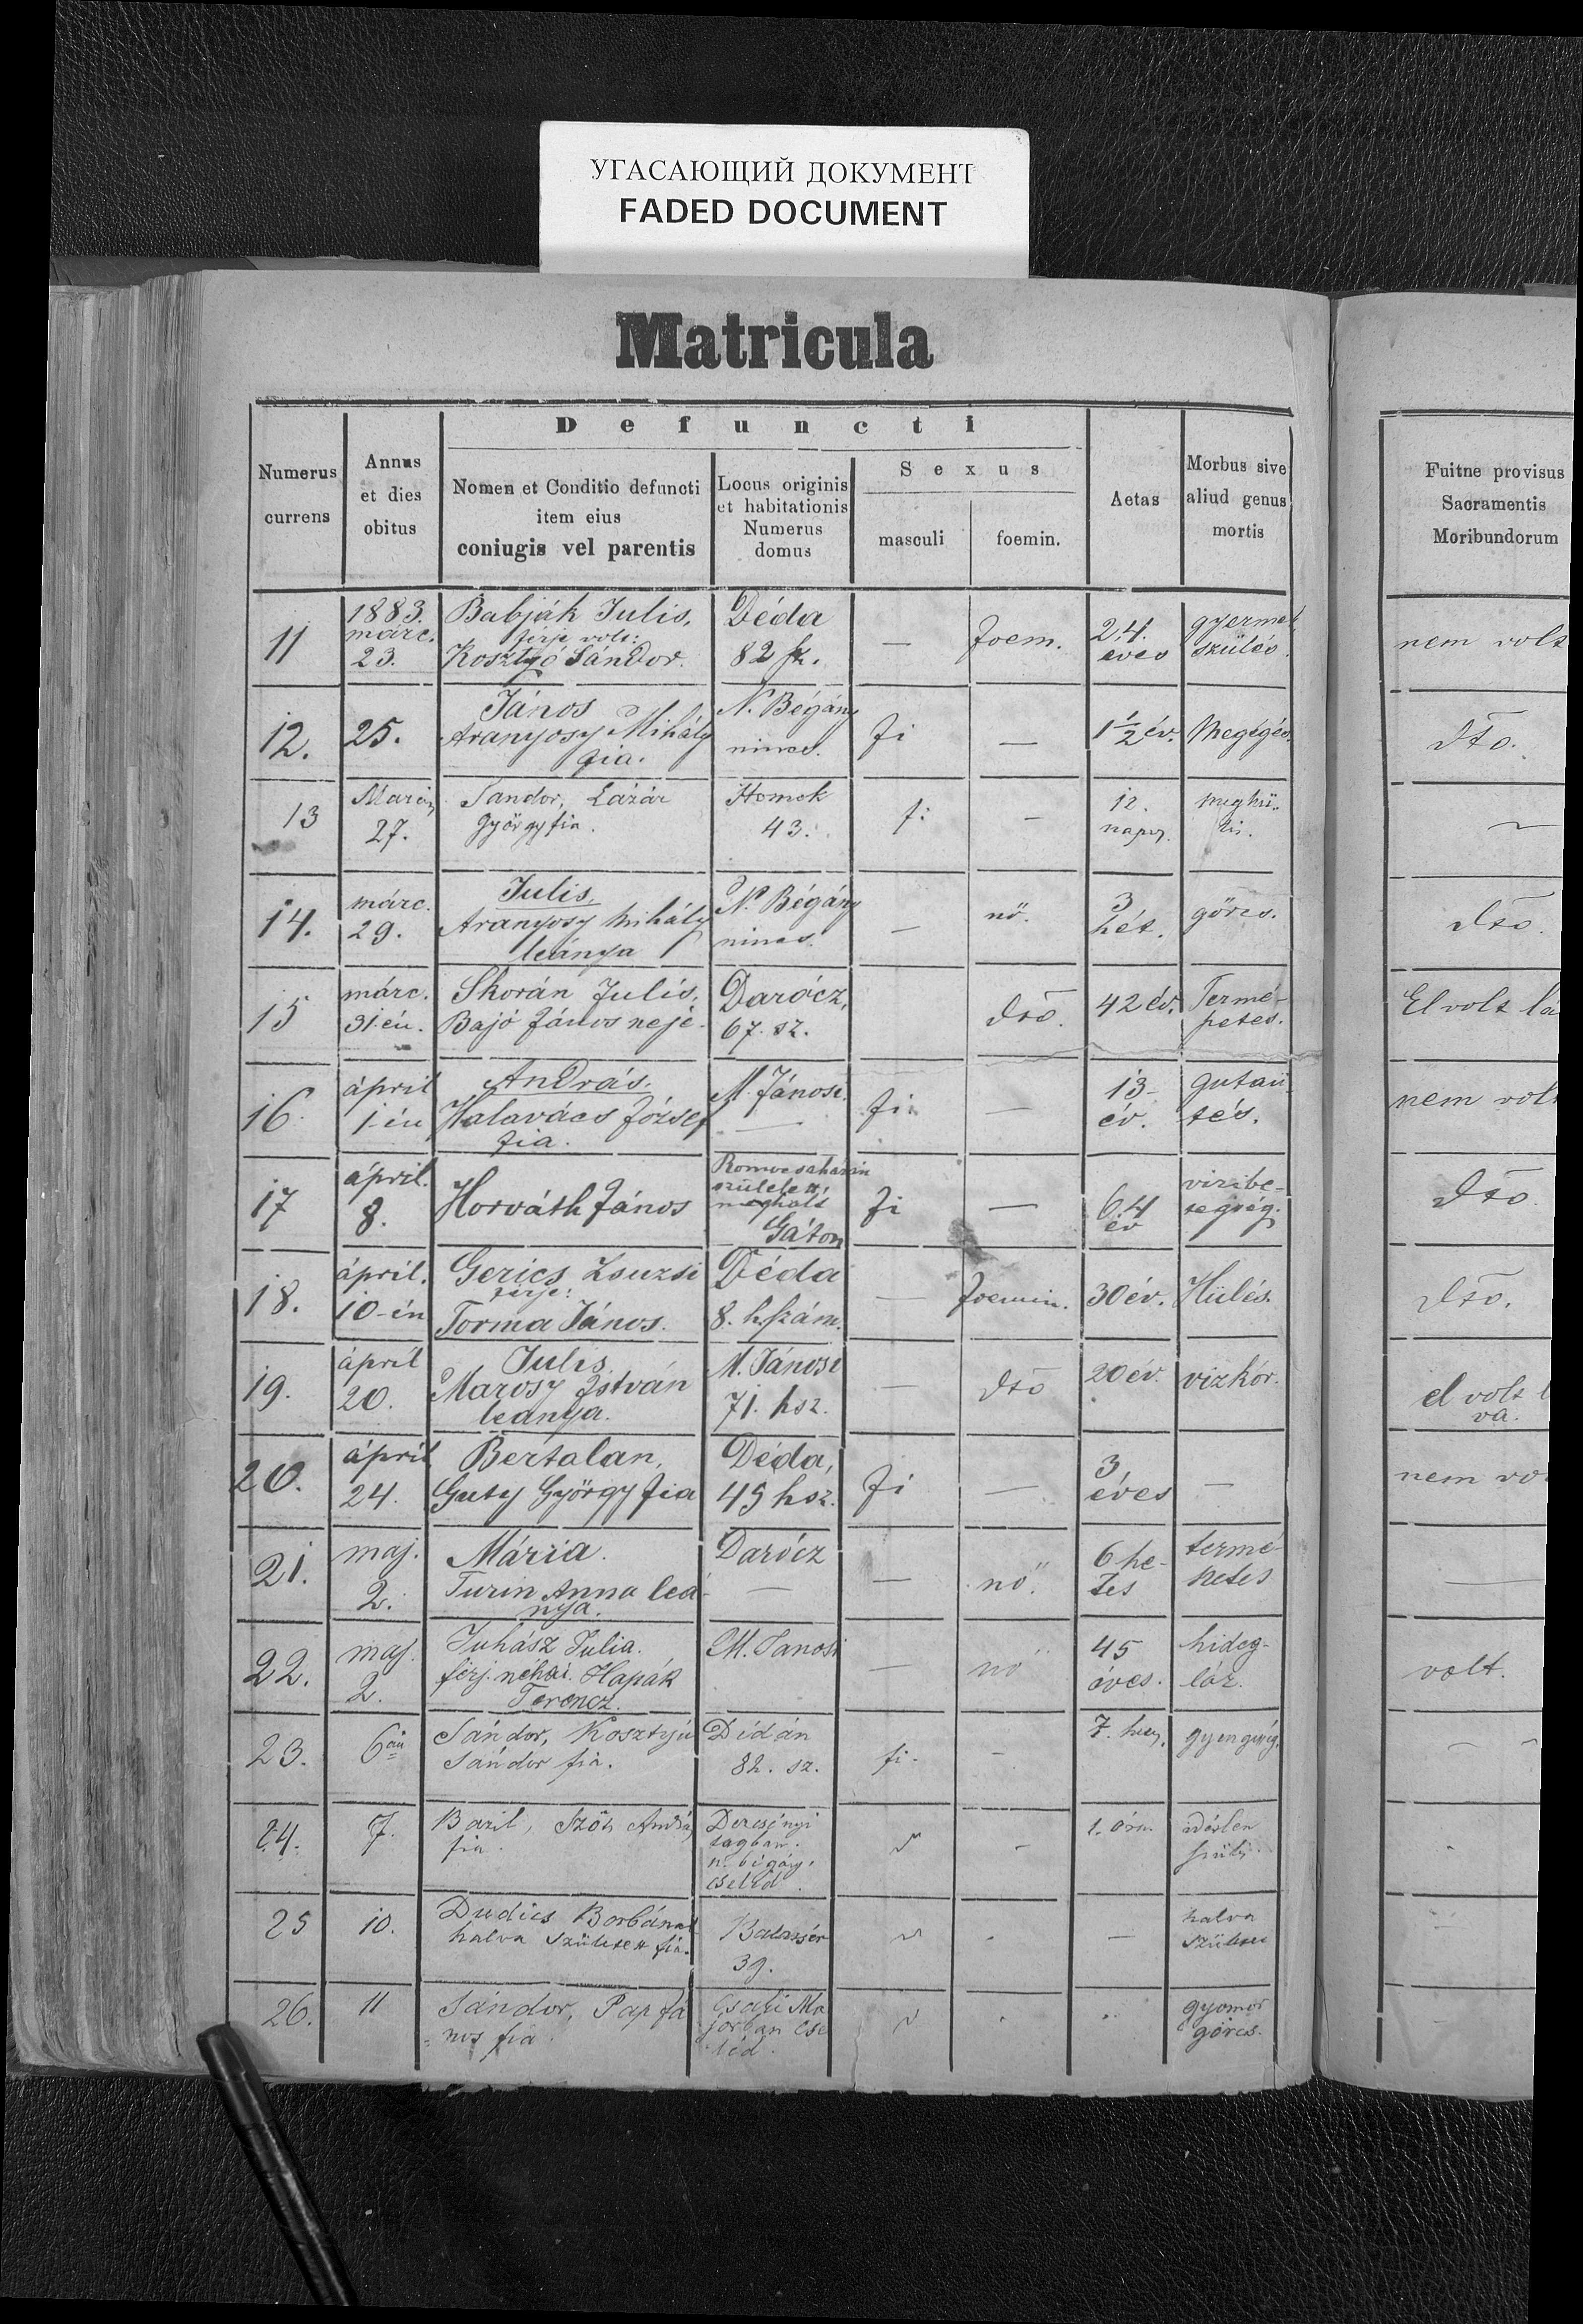 УГАСАЮЩИЙ ДОКУМЕНТ
FADED DOCUMENT
Matricula
Numerus
currens
Annus
et dies
obitus
Defuncti
Nomen et Conditio defuncti
item eius
coniugis vel parentis
Locus originis
et habitationis
Numerus
domus
Sexus
masculi
foemin.
Aetas
Morbus sive
aliud genus
mortis
Fuitne provisus
Sacramentis
Moribundorum
11
1883.
márc.
23.
Babják Julis,
férje volt:
Kosztyó Sándor.
Déda
82
—
foem.
24.
éves
gyermek
szülés.
nem volt
12.
25.
János
Aranyosy Mihály
fia.
N. Bégány
nincs.
fi
—
1 1/2 év.
Megégés.
dto.
13
27.
Sandor, Lázár
György fia.
Homok
43.
fi
–
12.
napos.
meghü-
lés.
14.
márc.
29.
Julis,
Aranyosy Mihály
leánya
N. Bégány
nincs.
—
nő.
3
hét.
görcs.
dto.
15
márc.
31-én.
Skorán Julis,
Bajó János neje.
Darócz,
67. sz.
dto.
42 év.
Termé-
szetes.
El volt lá
16.
ápril
1-én
András.
Halavács József
fia.
M. Jánosi.
—
fi.
—
13-
év.
gutaü-
tés.
nem volt
17
ápril.
8.
Horváth János
született,
meghalt
Gáton
fi
—
64
év
vizibe-
tegség.
dto.
18.
ápril.
10-én
Gerics Zsuzsi
férje:
Torma János.
Déda
8. h. szám.
—
foemin.
30 év.
Hülés.
dto.
19.
ápril
20.
Julis
Marosy István
leánya.
M. Jánosi
71. hsz.
—
dto
20 év.
vizkór.
el volt l
va.
20.
ápril
24.
Bertalan,
Guty György fia
Déda,
45 hsz.
fi
—
3
éves
—
nem vo
21.
maj.
2.
Mária.
Turin Anna leá-
nya.
Darócz
—
—
nő.
6 he-
tes
termé-
szetes
—
22.
maj.
2.
Juhász Julia.
férj. néhai Hapák
Ferencz.
M. Janosi
—
nő
45
éves.
hideg-
láz.
volt.
23.
6án
Sándor, Kosztyu
Sándor fia.
Dédán
82. sz.
fi.
–
7. hetes
gyengeség.
24.
7.
Bazil, Szőts András
fia.
Dercsényi
tagban.
n. bégány.
cseléd.
–
1. óra.
időtlen
szülés
25
10.
Dudics Borbának
halva született fia.
Batrasér
39.
–
halva
született
26.
11
Sándor, Pap Já
nos fia.
Csati Ma
jorban cse
léd.
gyomor
görcs.